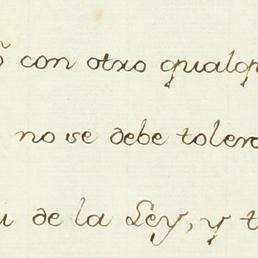 con otro qualq
no se debe toler
de la Ley, y t